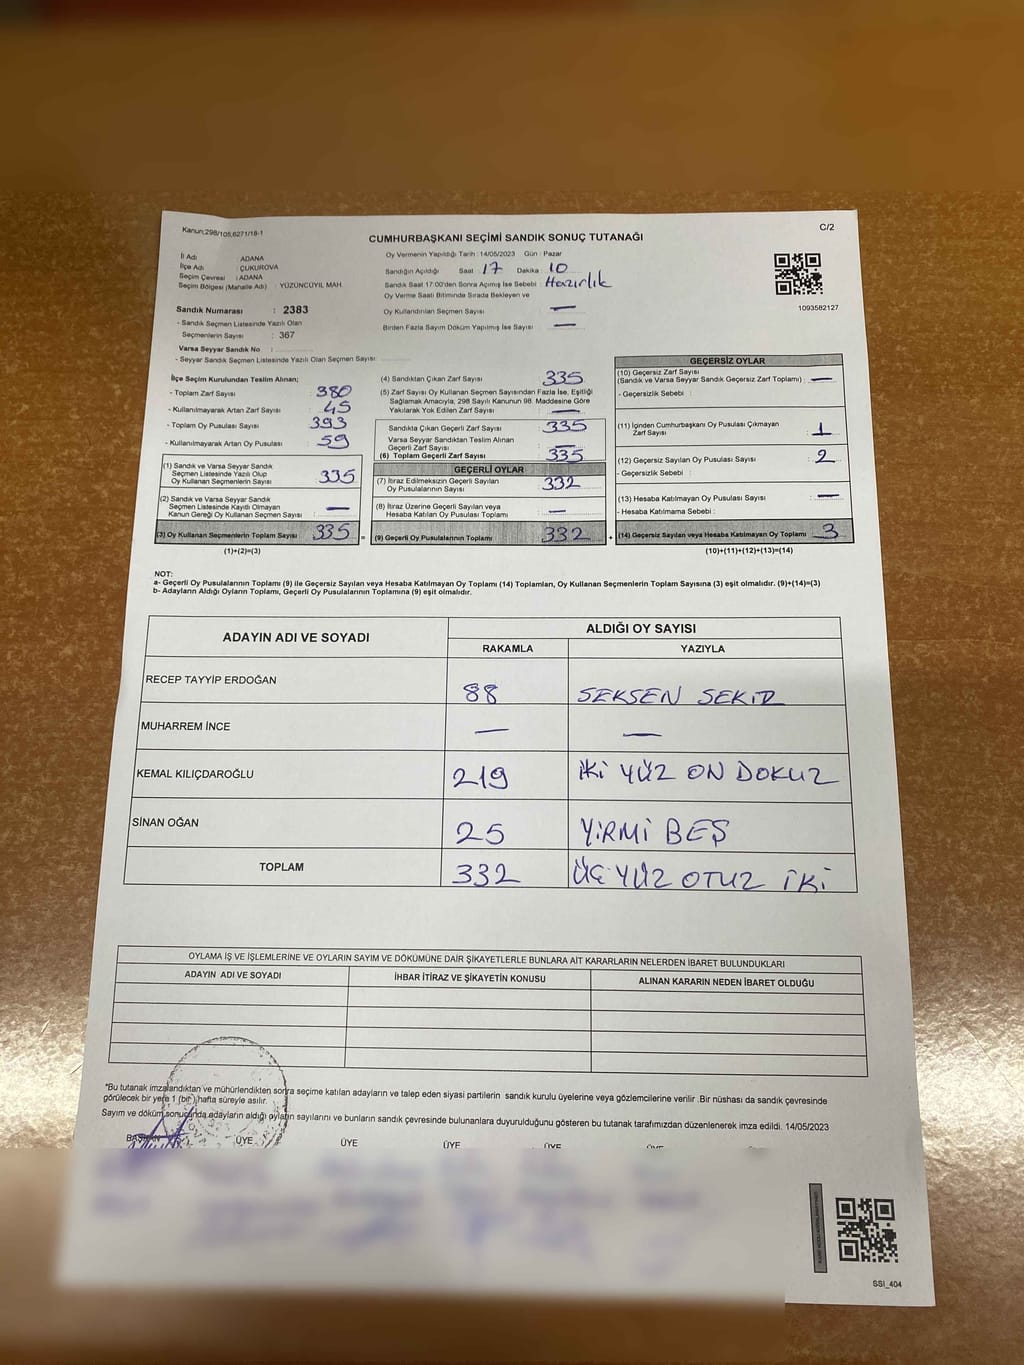 Kanun;298/105,6271/18-1
C/2
CUMHURBAŞKANI SEÇİMİ SANDIK SONUÇ TUTANAĞI
İl Adı ADANA
İlçe Adı ÇUKUROVA
Seçim Çevresi : ADANA
Seçim Bölgesi (Mahalle Adı) : YÜZÜNCÜYIL MAH.
Sandık Numarası : 2383
- Sandık Seçmen Listesinde Yazılı Olan
Seçmenlerin Sayısı : 367
Varsa Seyyar Sandık No :
- Seyyar Sandık Seçmen Listesinde Yazılı Olan Seçmen Sayısı:
Oy Vermenin Yapıldığı Tarih : 14/05/2023 Gün : Pazar
Sandığın Açıldığı Saat : 17 Dakika : 10
Sandık Saat 17:00'den Sonra Açımış İse Sebebi : Hazırlık
Oy Verme Saati Bitiminde Sırada Bekleyen ve
Oy Kullandırılan Seçmen Sayısı : —
Birden Fazla Sayım Döküm Yapılmış İse Sayısı : —
1093582127
İlçe Seçim Kurulundan Teslim Alınan;
- Toplam Zarf Sayısı : 380
- Kullanılmayarak Artan Zarf Sayısı : 45
- Toplam Oy Pusulası Sayısı : 393
- Kullanılmayarak Artan Oy Pusulası : 59
(1) Sandık ve Varsa Seyyar Sandık
Seçmen Listesinde Yazılı Olup
Oy Kullanan Seçmenlerin Sayısı : 335
(2) Sandık ve Varsa Seyyar Sandık
Seçmen Listesinde Kayıtlı Olmayan
Kanun Gereği Oy Kullanan Seçmen Sayısı : —
(3) Oy Kullanan Seçmenlerin Toplam Sayısı : 335
(1)+(2)=(3)
(4) Sandıktan Çıkan Zarf Sayısı 335
(5) Zarf Sayısı Oy Kullanan Seçmen Sayısından Fazla İse, Eşitliği
Sağlamak Amacıyla, 298 Sayılı Kanunun 98. Maddesine Göre
Yakılarak Yok Edilen Zarf Sayısı : —
Sandıkta Çıkan Geçerli Zarf Sayısı : 335
Varsa Seyyar Sandıktan Teslim Alınan
Geçerli Zarf Sayısı : —
(6) Toplam Geçerli Zarf Sayısı : 335
GEÇERLİ OYLAR
(7) İtiraz Edilmeksizin Geçerli Sayılan
Oy Pusulalarının Sayısı : 332
(8) İtiraz Üzerine Geçerli Sayılan veya
Hesaba Katılan Oy Pusulası Sayısı : —
= (9) Geçerli Oy Pusulalarının Toplamı : 332 +
GEÇERSİZ OYLAR
(10) Geçersiz Zarf Sayısı
(Sandık ve Varsa Seyyar Sandık Geçersiz Zarf Toplamı) : —
- Geçersizlik Sebebi :
(11) İçinden Cumhurbaşkanı Oy Pusulası Çıkmayan
Zarf Sayısı : 1
(12) Geçersiz Sayılan Oy Pusulası Sayısı : 2
- Geçersizlik Sebebi :
(13) Hesaba Katılmayan Oy Pusulası Sayısı : —
- Hesaba Katılmama Sebebi :
(14) Geçersiz Sayılan veya Hesaba Katılmayan Oy Toplamı : 3
(10)+(11)+(12)+(13)=(14)
NOT:
a- Geçerli Oy Pusulalarının Toplamı (9) ile Geçersiz Sayılan veya Hesaba Katılmayan Oy Toplamı (14) Toplamları, Oy Kullanan Seçmenlerin Toplam Sayısına (3) eşit olmalıdır. (9)+(14)=(3)
b- Adayların Aldığı Oyların Toplamı, Geçerli Oy Pusulalarının Toplamına (9) eşit olmalıdır.
ADAYIN ADI VE SOYADI ALDIĞI OY SAYISI
RAKAMLA YAZIYLA
RECEP TAYYİP ERDOĞAN 88 SEKSEN SEKİZ
MUHARREM İNCE — —
KEMAL KILIÇDAROĞLU 219 İKİ YÜZ ON DOKUZ
SİNAN OĞAN 25 YİRMİ BEŞ
TOPLAM 332 ÜÇ YÜZ OTUZ İKİ
OYLAMA İŞ VE İŞLEMLERİNE VE OYLARIN SAYIM VE DÖKÜMÜNE DAİR ŞİKAYETLERLE BUNLARA AİT KARARLARIN NELERDEN İBARET BULUNDUKLARI
ADAYIN ADI VE SOYADI İHBAR İTİRAZ VE ŞİKAYETİN KONUSU ALINAN KARARIN NEDEN İBARET OLDUĞU
*Bu tutanak imzalandıktan ve mühürlendikten sonra seçime katılan adayların ve talep eden siyasi partilerin sandık kurulu üyelerine veya gözlemcilerine verilir .Bir nüshası da sandık çevresinde
görülecek bir yere 1 (bir ) hafta süreyle asılır.
Sayım ve döküm sonucunda adayların aldığı oyların sayılarını ve bunların sandık çevresinde bulunanlara duyurulduğunu gösteren bu tutanak tarafımızdan düzenlenerek imza edildi. 14/05/2023
BAŞKAN ÜYE ÜYE ÜYE ÜYE ÜYE
SSI_404